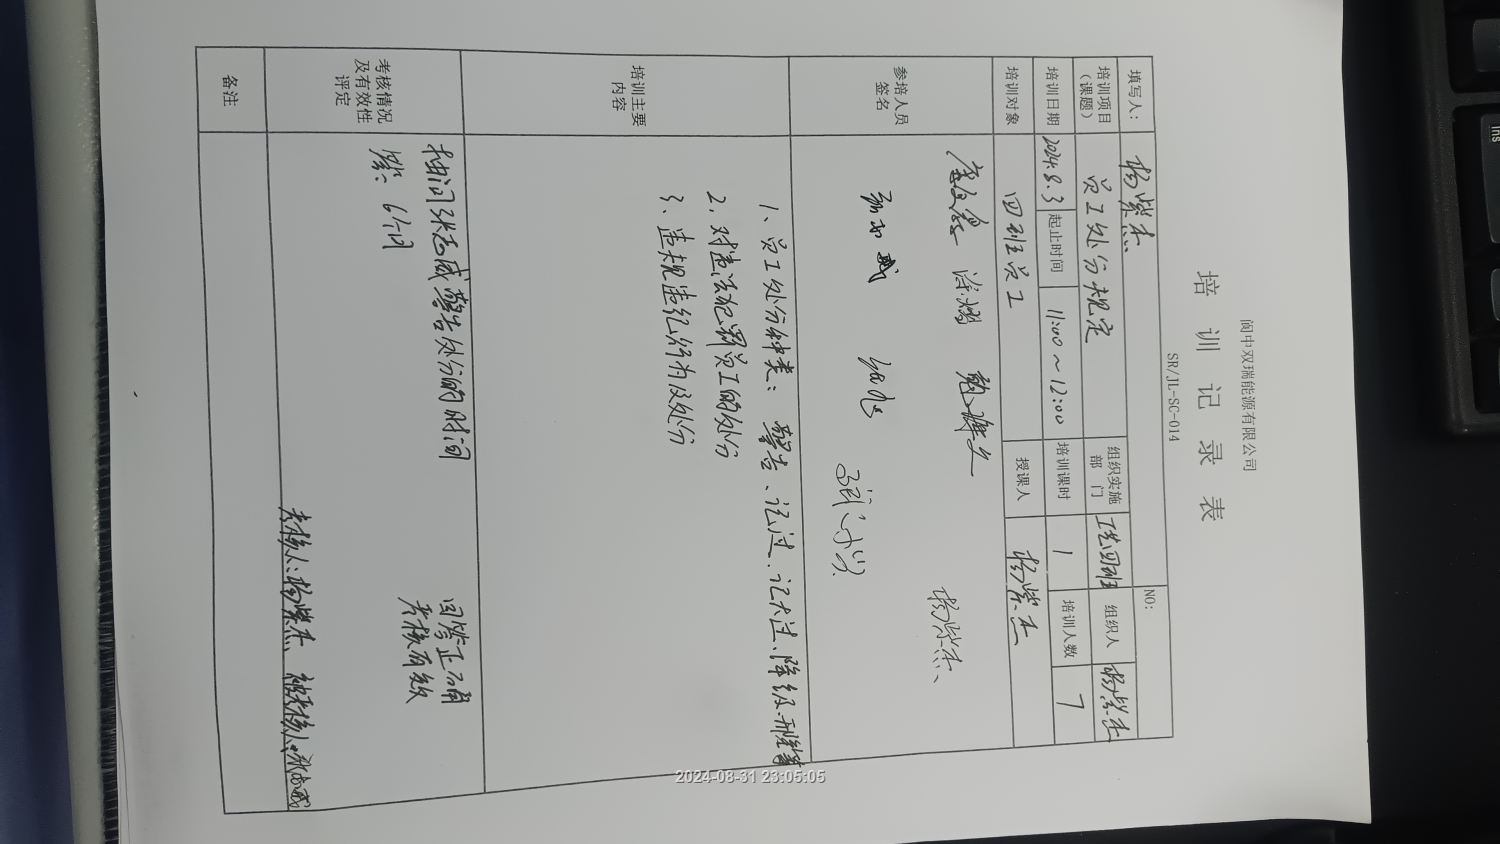 阆中双瑞能源有限公司
培训记录表
SR/JL-SC-014
NO:
填写人： 杨紫杰
培训项目（课题） 员工处分规定 组织实施部门 工艺四班 组织人 杨紫杰
培训日期 2024.8.3 起止时间 11:00～12:00 培训课时 1 培训人数 7
培训对象 四班员工 授课人 杨紫杰
参培人员签名
杨紫杰
培训主要内容
1、员工处分种类：警告、记过、记大过、降级
2、对违法犯罪员工的处分
3、违规违纪行为及处分
考核情况及有效性评定
抽问张志威警告处分的时间
答：6个月
回答正确
考核有效
考核人：杨紫杰 被考核人：张志威
备注
2024-08-31 23:05:05